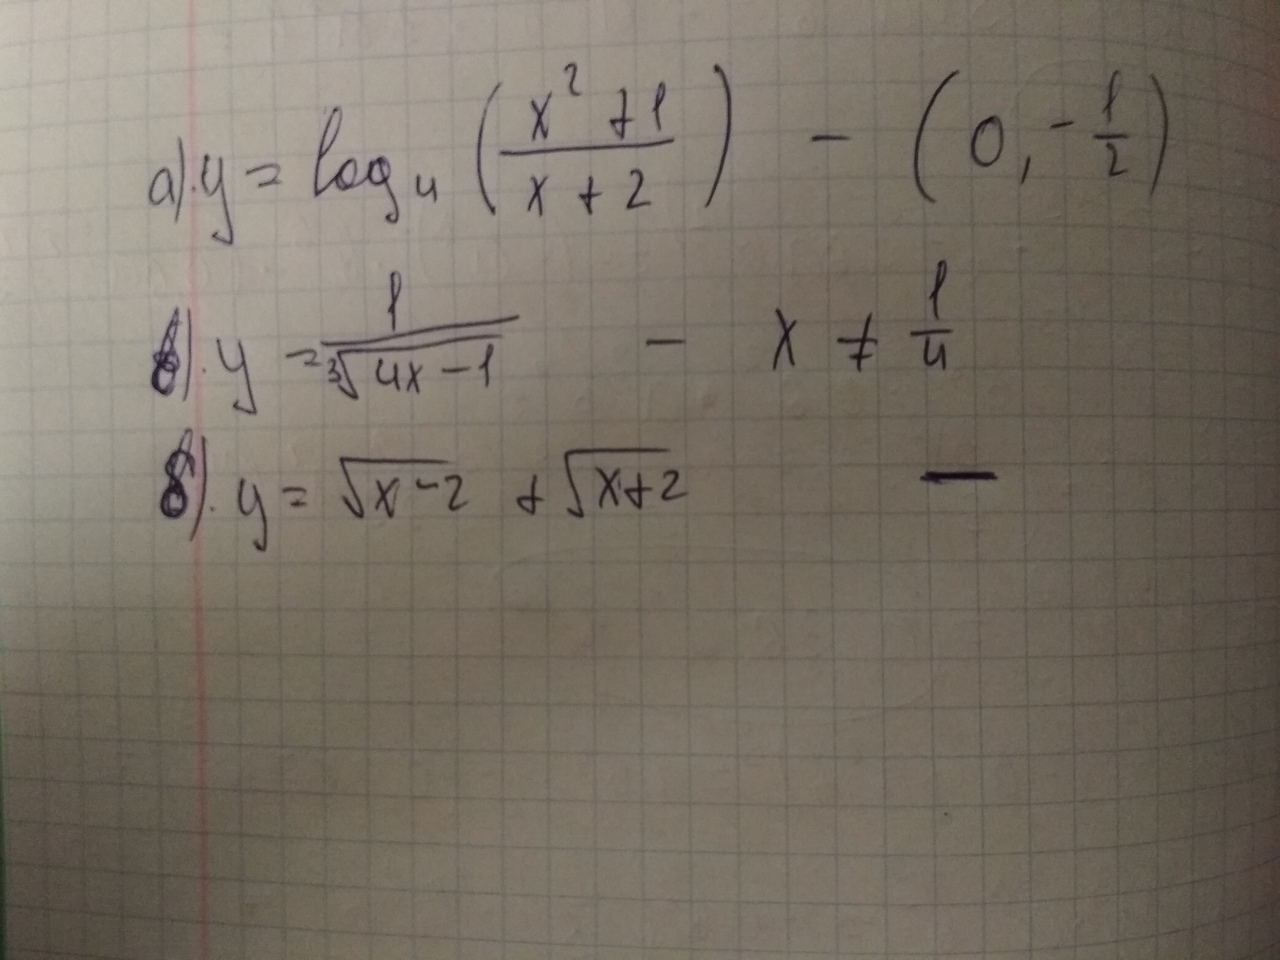 а). y = log₄ ((x² + 1)/(x + 2)) - (0, -1/2)
в). y = 1/∛(4x - 1) - x ≠ 1/4
б). y = √(x - 2) + √(x + 2) —